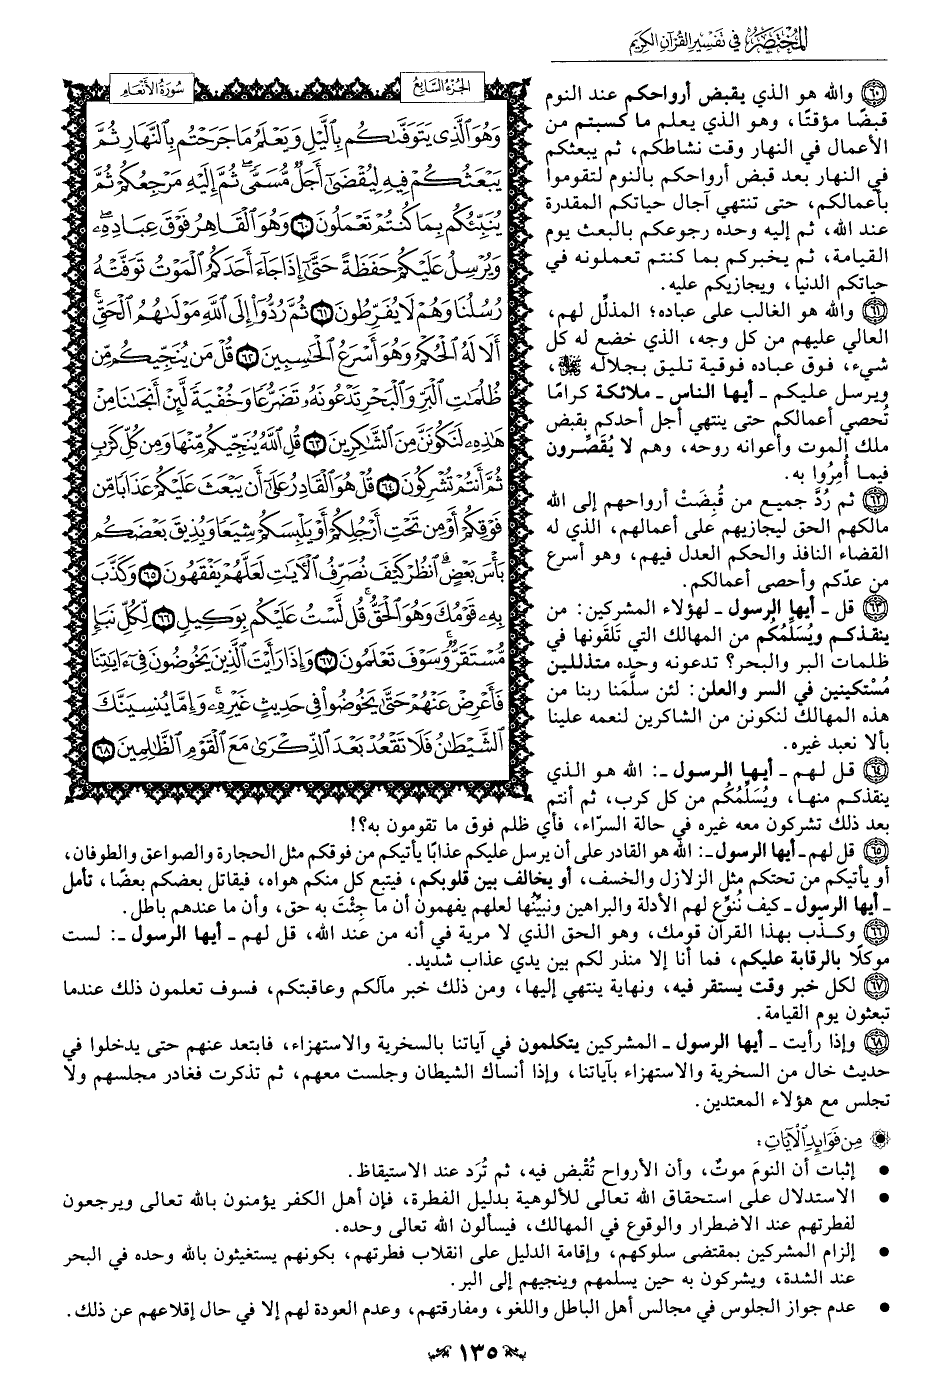 المختصر في تفسير القرآن الكريم
الجزء السابع
سورة الأنعام
وَهُوَ ٱلَّذِي يَتَوَفَّىٰكُم بِٱلَّيۡلِ وَيَعۡلَمُ مَا جَرَحۡتُم بِٱلنَّهَارِ ثُمَّ
يَبۡعَثُكُمۡ فِيهِ لِيُقۡضَىٰٓ أَجَلٞ مُّسَمّٗىۖ ثُمَّ إِلَيۡهِ مَرۡجِعُكُمۡ ثُمَّ
يُنَبِّئُكُم بِمَا كُنتُمۡ تَعۡمَلُونَ ٦٠ وَهُوَ ٱلۡقَاهِرُ فَوۡقَ عِبَادِهِۦۖ
وَيُرۡسِلُ عَلَيۡكُمۡ حَفَظَةً حَتَّىٰٓ إِذَا جَآءَ أَحَدَكُمُ ٱلۡمَوۡتُ تَوَفَّتۡهُ
رُسُلُنَا وَهُمۡ لَا يُفَرِّطُونَ ٦١ ثُمَّ رُدُّوٓاْ إِلَى ٱللَّهِ مَوۡلَىٰهُمُ ٱلۡحَقِّۚ
أَلَا لَهُ ٱلۡحُكۡمُ وَهُوَ أَسۡرَعُ ٱلۡحَٰسِبِينَ ٦٢ قُلۡ مَن يُنَجِّيكُم مِّن
ظُلُمَٰتِ ٱلۡبَرِّ وَٱلۡبَحۡرِ تَدۡعُونَهُۥ تَضَرُّعٗا وَخُفۡيَةٗ لَّئِنۡ أَنجَىٰنَا مِنۡ
هَٰذِهِۦ لَنَكُونَنَّ مِنَ ٱلشَّٰكِرِينَ ٦٣ قُلِ ٱللَّهُ يُنَجِّيكُم مِّنۡهَا وَمِن كُلِّ كَرۡبٖ
ثُمَّ أَنتُمۡ تُشۡرِكُونَ ٦٤ قُلۡ هُوَ ٱلۡقَادِرُ عَلَىٰٓ أَن يَبۡعَثَ عَلَيۡكُمۡ عَذَابٗا مِّن
فَوۡقِكُمۡ أَوۡ مِن تَحۡتِ أَرۡجُلِكُمۡ أَوۡ يَلۡبِسَكُمۡ شِيَعٗا وَيُذِيقَ بَعۡضَكُم
بَأۡسَ بَعۡضٍۗ ٱنظُرۡ كَيۡفَ نُصَرِّفُ ٱلۡأٓيَٰتِ لَعَلَّهُمۡ يَفۡقَهُونَ ٦٥ وَكَذَّبَ
بِهِۦ قَوۡمُكَ وَهُوَ ٱلۡحَقُّۚ قُل لَّسۡتُ عَلَيۡكُم بِوَكِيلٖ ٦٦ لِّكُلِّ نَبَإٖ
مُّسۡتَقَرّٞۚ وَسَوۡفَ تَعۡلَمُونَ ٦٧ وَإِذَا رَأَيۡتَ ٱلَّذِينَ يَخُوضُونَ فِيٓ ءَايَٰتِنَا
فَأَعۡرِضۡ عَنۡهُمۡ حَتَّىٰ يَخُوضُواْ فِي حَدِيثٍ غَيۡرِهِۦۚ وَإِمَّا يُنسِيَنَّكَ
ٱلشَّيۡطَٰنُ فَلَا تَقۡعُدۡ بَعۡدَ ٱلذِّكۡرَىٰ مَعَ ٱلۡقَوۡمِ ٱلظَّٰلِمِينَ ٦٨
٦٠ والله هو الذي يقبض أرواحكم عند النوم
قبضًا مؤقتًا، وهو الذي يعلم ما كسبتم من
الأعمال في النهار وقت نشاطكم، ثم يبعثكم
في النهار بعد قبض أرواحكم بالنوم لتقوموا
بأعمالكم، حتى تنتهي آجال حياتكم المقدرة
عند الله، ثم إليه وحده رجوعكم بالبعث يوم
القيامة، ثم يخبركم بما كنتم تعملونه في
حياتكم الدنيا، ويجازيكم عليه.
٦١ والله هو الغالب على عباده؛ المذلِّل لهم،
العالي عليهم من كل وجه، الذي خضع له كل
شيء، فوق عباده فوقية تليق بجلاله ﷻ،
ويرسل عليكم ـ أيها الناس ـ ملائكة كرامًا
تُحصي أعمالكم حتى ينتهي أجل أحدكم بقبض
ملك الموت وأعوانه روحه، وهم لا يُقَصِّرون
فيما أُمِرُوا به.
٦٢ ثم رُدَّ جميع من قُبِضَتْ أرواحهم إلى الله
مالكهم الحق ليجازيهم على أعمالهم، الذي له
القضاء النافذ والحكم العدل فيهم، وهو أسرع
من عدّكم وأحصى أعمالكم.
٦٣ قل ـ أيها الرسول ـ لهؤلاء المشركين: من
ينقذكم ويُسَلِّمُكُم من المهالك التي تلقونها في
ظلمات البر والبحر؟ تدعونه وحده متذللين
مُسْتكينين في السر والعلن: لئن سلَّمَنا ربنا من
هذه المهالك لنكونن من الشاكرين لنعمه علينا
بألا نعبد غيره.
٦٤ قل لهم ـ أيها الرسول ـ: الله هو الذي
ينقذكم منها، ويُسَلِّمُكُم من كل كرب، ثم أنتم
بعد ذلك تشركون معه غيره في حالة السرّاء، فأي ظلم فوق ما تقومون به؟!
٦٥ قل لهم ـ أيها الرسول ـ: الله هو القادر على أن يرسل عليكم عذابًا يأتيكم من فوقكم مثل الحجارة والصواعق والطوفان،
أو يأتيكم من تحتكم مثل الزلازل والخسف، أو يخالف بين قلوبكم، فيتبع كل منكم هواه، فيقاتل بعضكم بعضًا، تأمل
ـ أيها الرسول ـ كيف نُنوِّع لهم الأدلة والبراهين ونبيِّنُها لعلهم يفهمون أن ما جِئْتَ به حق، وأن ما عندهم باطل.
٦٦ وكذّب بهذا القرآن قومك، وهو الحق الذي لا مرية في أنه من عند الله، قل لهم ـ أيها الرسول ـ: لست
موكلًا بالرقابة عليكم، فما أنا إلا منذر لكم بين يدي عذاب شديد.
٦٧ لكل خبر وقت يستقر فيه، ونهاية ينتهي إليها، ومن ذلك خبر مآلكم وعاقبتكم، فسوف تعلمون ذلك عندما
تبعثون يوم القيامة.
٦٨ وإذا رأيت ـ أيها الرسول ـ المشركين يتكلمون في آياتنا بالسخرية والاستهزاء، فابتعد عنهم حتى يدخلوا في
حديث خال من السخرية والاستهزاء بآياتنا، وإذا أنساك الشيطان وجلست معهم، ثم تذكرت فغادر مجلسهم ولا
تجلس مع هؤلاء المعتدين.
من فوائد الآيات:
• إثبات أن النومَ موتٌ، وأن الأرواح تُقْبض فيه، ثم تُرَد عند الاستيقاظ.
• الاستدلال على استحقاق الله تعالى للألوهية بدليل الفطرة، فإن أهل الكفر يؤمنون بالله تعالى ويرجعون
لفطرتهم عند الاضطرار والوقوع في المهالك، فيسألون الله تعالى وحده.
• إلزام المشركين بمقتضى سلوكهم، وإقامة الدليل على انقلاب فطرتهم، بكونهم يستغيثون بالله وحده في البحر
عند الشدة، ويشركون به حين يسلمهم وينجيهم إلى البر.
• عدم جواز الجلوس في مجالس أهل الباطل واللغو، ومفارقتهم، وعدم العودة لهم إلا في حال إقلاعهم عن ذلك.
١٣٥